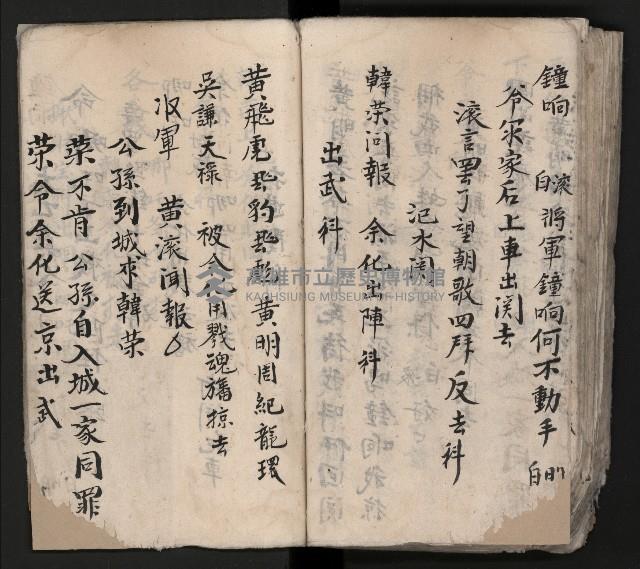 鐘响 滚白 將軍鐘响何不動手 明白
爷众家后上車出関去
滚言罢了望朝歌四拜 反去科
汜水関
韓荣问報 余化出陣科
出武科
黄飛虎飛豹飛彪黄明周紀龍环
吳謙天禄 被余化用戮魂旛掠去
収軍 黄滚闻報
公孫到城求韓荣
荣不肯 公孫自入城一家同罪
荣令余化送京出武
高雄市立歷史博物館
KAOHSIUNG MUSEUM OF HISTORY